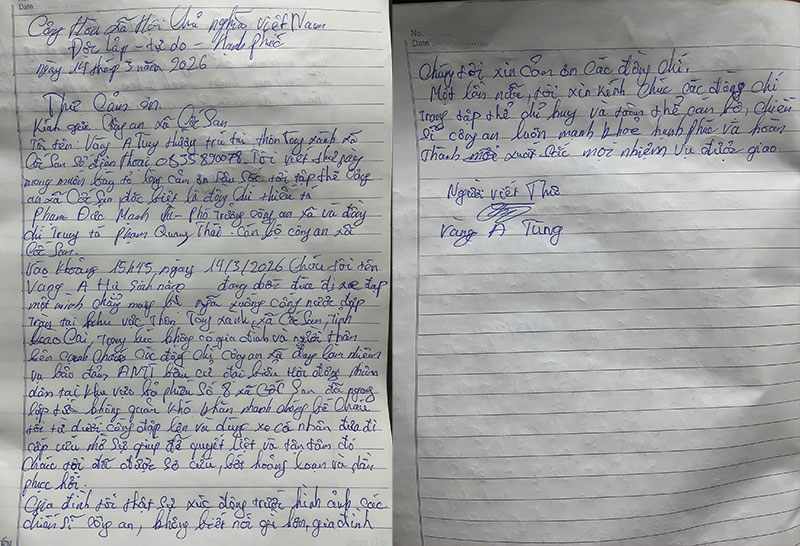 Date
Cộng Hòa Xã Hội Chủ nghĩa Việt Nam
Độc lập - tự do - Hạnh phúc
Ngày 14 tháng 3 năm 2026
Thư Cảm ơn.
Kính gửi: Công an xã Cốc San
Tôi tên: Vàng A Tung thường trú tại thôn Tòng xành xã
Cốc San Số điện thoại Tôi viết thư này
mong muốn bày tỏ lòng cảm ơn sâu sắc tới tập thể Công
an xã Cốc San đặc biệt là đồng chí thiếu tá
Phạm Đức Mạnh - Phó trưởng công an xã và đồng
chí Trung tá Phạm Quang Thái - Cán bộ công an xã
Cốc San.
Vào khoảng 15h45, ngày 14/3/2026 Cháu tôi tên
Vàng - A Hử Sinh năm đang được đi xe đạp
một mình chẳng may bị ngã xuống cống nước đập
tràn tại khu vực Thôn Tòng xành, xã Cốc San, tỉnh
Lào Cai, trong lúc không có gia đình và người thân
bên cạnh Cháu. Các đồng chí công an xã đang làm nhiệm
vụ bảo đảm ANTT bầu cử đại biểu Hội đồng nhân
dân tại khu vực bỏ phiếu Số 8 xã Cốc San đã ngay
lập tức không quản khó khăn nhanh chóng bế cháu
tôi từ dưới cống đập lên và dùng xe cá nhân đưa đi
cấp cứu nhờ sự giúp đỡ quyết liệt và tận tâm đó
Cháu tôi đã được sơ cứu, bớt hoảng loạn và dần
phục hồi.
Gia đình tôi thật sự xúc động trước hình ảnh các
chiến sĩ công an, không biết nói gì hơn, gia đình
No.
Date
Chúng tôi xin cảm ơn các đồng chí.
Một lần nữa, tôi xin kính chúc các đồng chí
trong tập thể chỉ huy và toàn thể cán bộ, chiến
sĩ công an luôn mạnh khoẻ hạnh phúc và hoàn
thành xuất sắc mọi nhiệm vụ được giao
Người viết Thư
Vàng A Tung